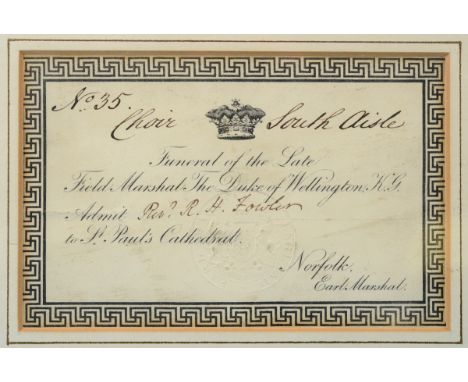 No. 35.
Choir South Aisle
Funeral of the Late
Field Marshal The Duke of Wellington, K.G.
Admit Revd. R. H. Fowler
to St. Paul's Cathedral.
Norfolk.
Earl Marshal.